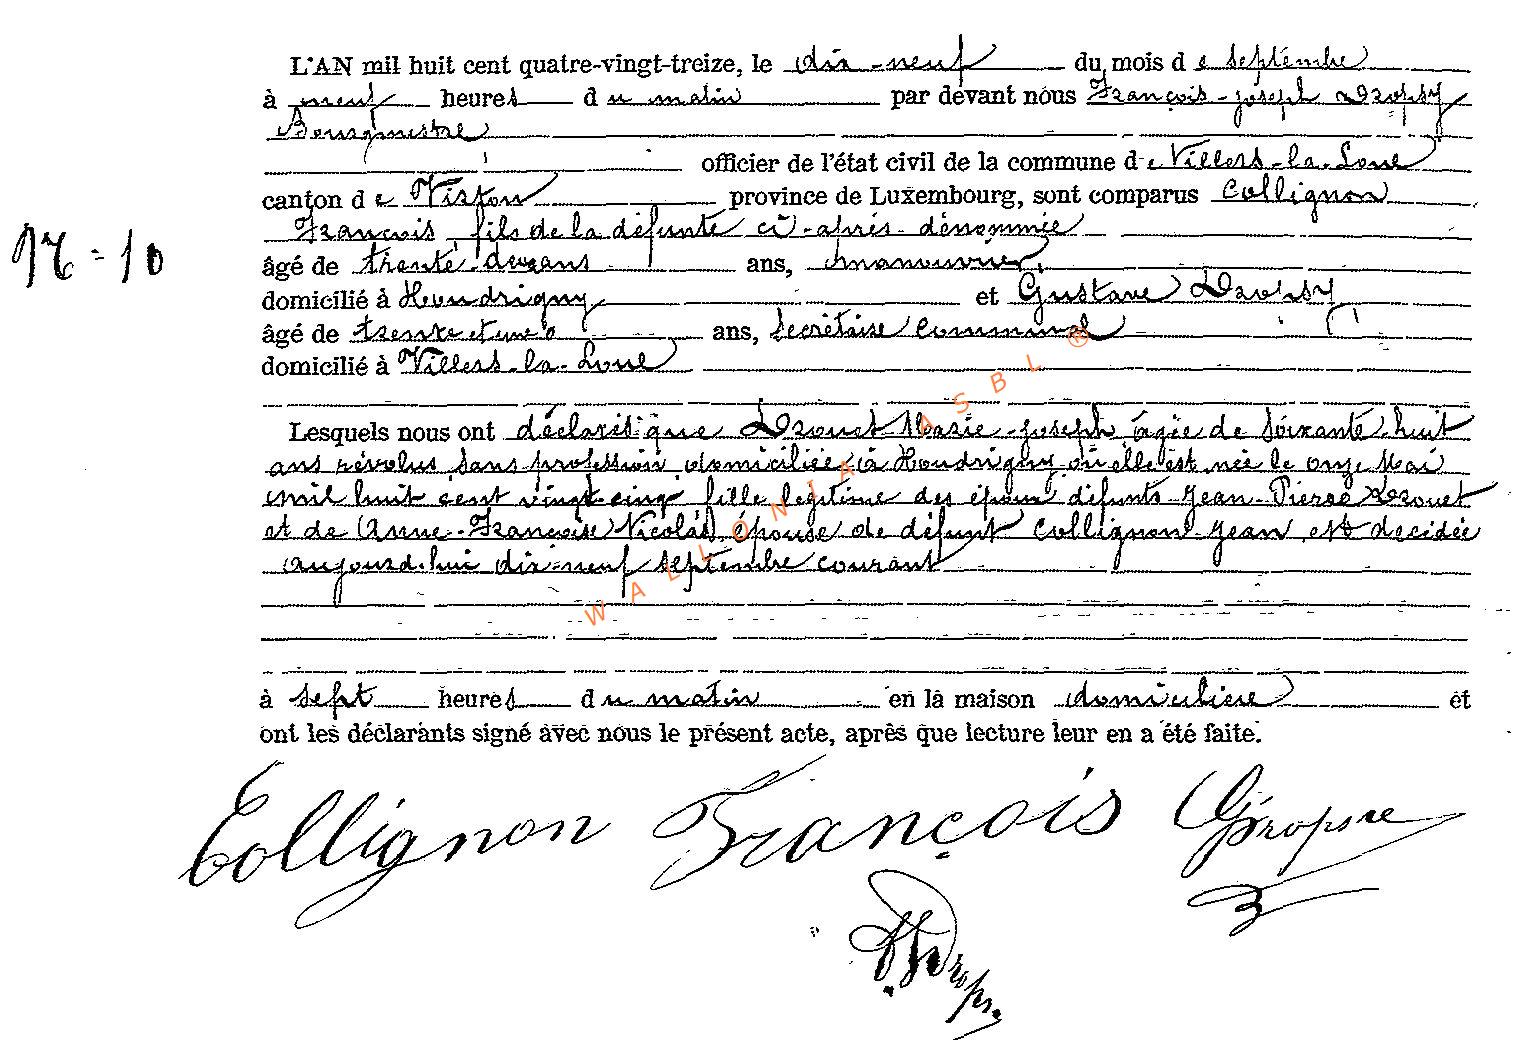 L'AN mil huit cent quatre-vingt-treize, le dix-neuf du mois de septembre
à neuf heures du matin par devant nous François-Joseph Dropsy
Bourgmestre
officier de l'état civil de la commune de Villers-la-Loue
canton de Virton province de Luxembourg, sont comparus Collignon
François, fils de la défunte ci-après dénommée
âgé de trente-deux ans ans, manouvrier,
domicilié à Houdrigny et Gustave Dropsy
âgé de trente et un ans, Secrétaire communal
domicilié à Villers-la-Loue
Lesquels nous ont déclaré que Drouet Marie-Joseph, âgée de soixante-huit
ans révolus sans profession domiciliée à Houdrigny où elle est née le onze Mai
mil huit cent vingt-cinq fille légitime des époux défunts Jean-Pierre Drouet
et de Anne-Françoise Nicolas, épouse de défunt Collignon Jean est décédée
aujourd'hui dix-neuf septembre courant
à sept heures du matin en la maison domiciliere et
ont les déclarants signé avec nous le présent acte, après que lecture leur en a été faite.
Collignon François GDropsy
WALLONIA ASBL ®